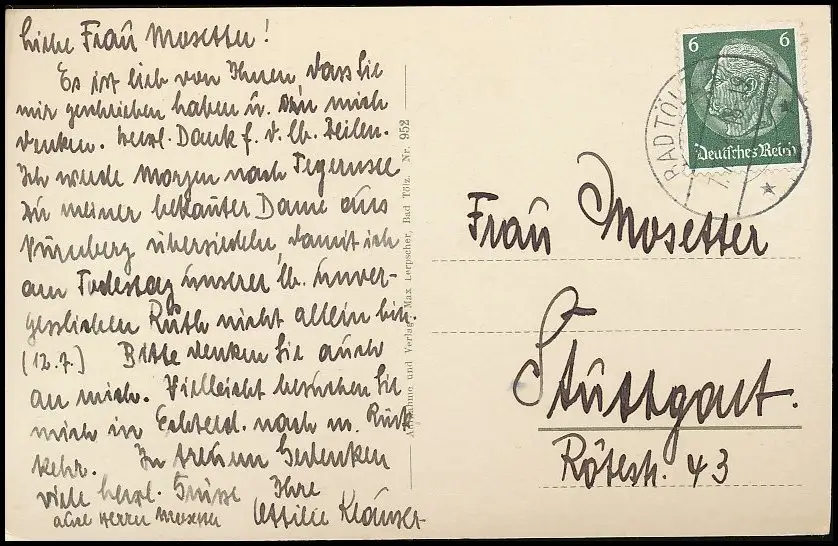 Liebe Frau Mosetter!
Es ist lieb von Ihnen, dass Sie
mir geschrieben haben u. an mich
denken. Herzl. Dank f. d. lb. Zeilen.
Ich werde morgen nach Tegernsee
zu meiner bekannter Dame aus
Nürnberg übersiedeln, damit ich
am Todestag unserer lb. unver-
gesslichen Ruth nicht allein bin.
(12.7.) Bitte denken Sie auch
an mich. Vielleicht besuchen Sie
mich in nach m. Rück
kehr. In treuem Gedenken
viele herzl. Grüsse Ihre
Herrn Mosetter Ottilie
Aufnahme und Verlag Max Lerpscher, Bad Tölz. Nr. 952
6 6
Deutsches Reich
BAD TÖL
Frau Mosetter
Stuttgart.
Rötestr. 43